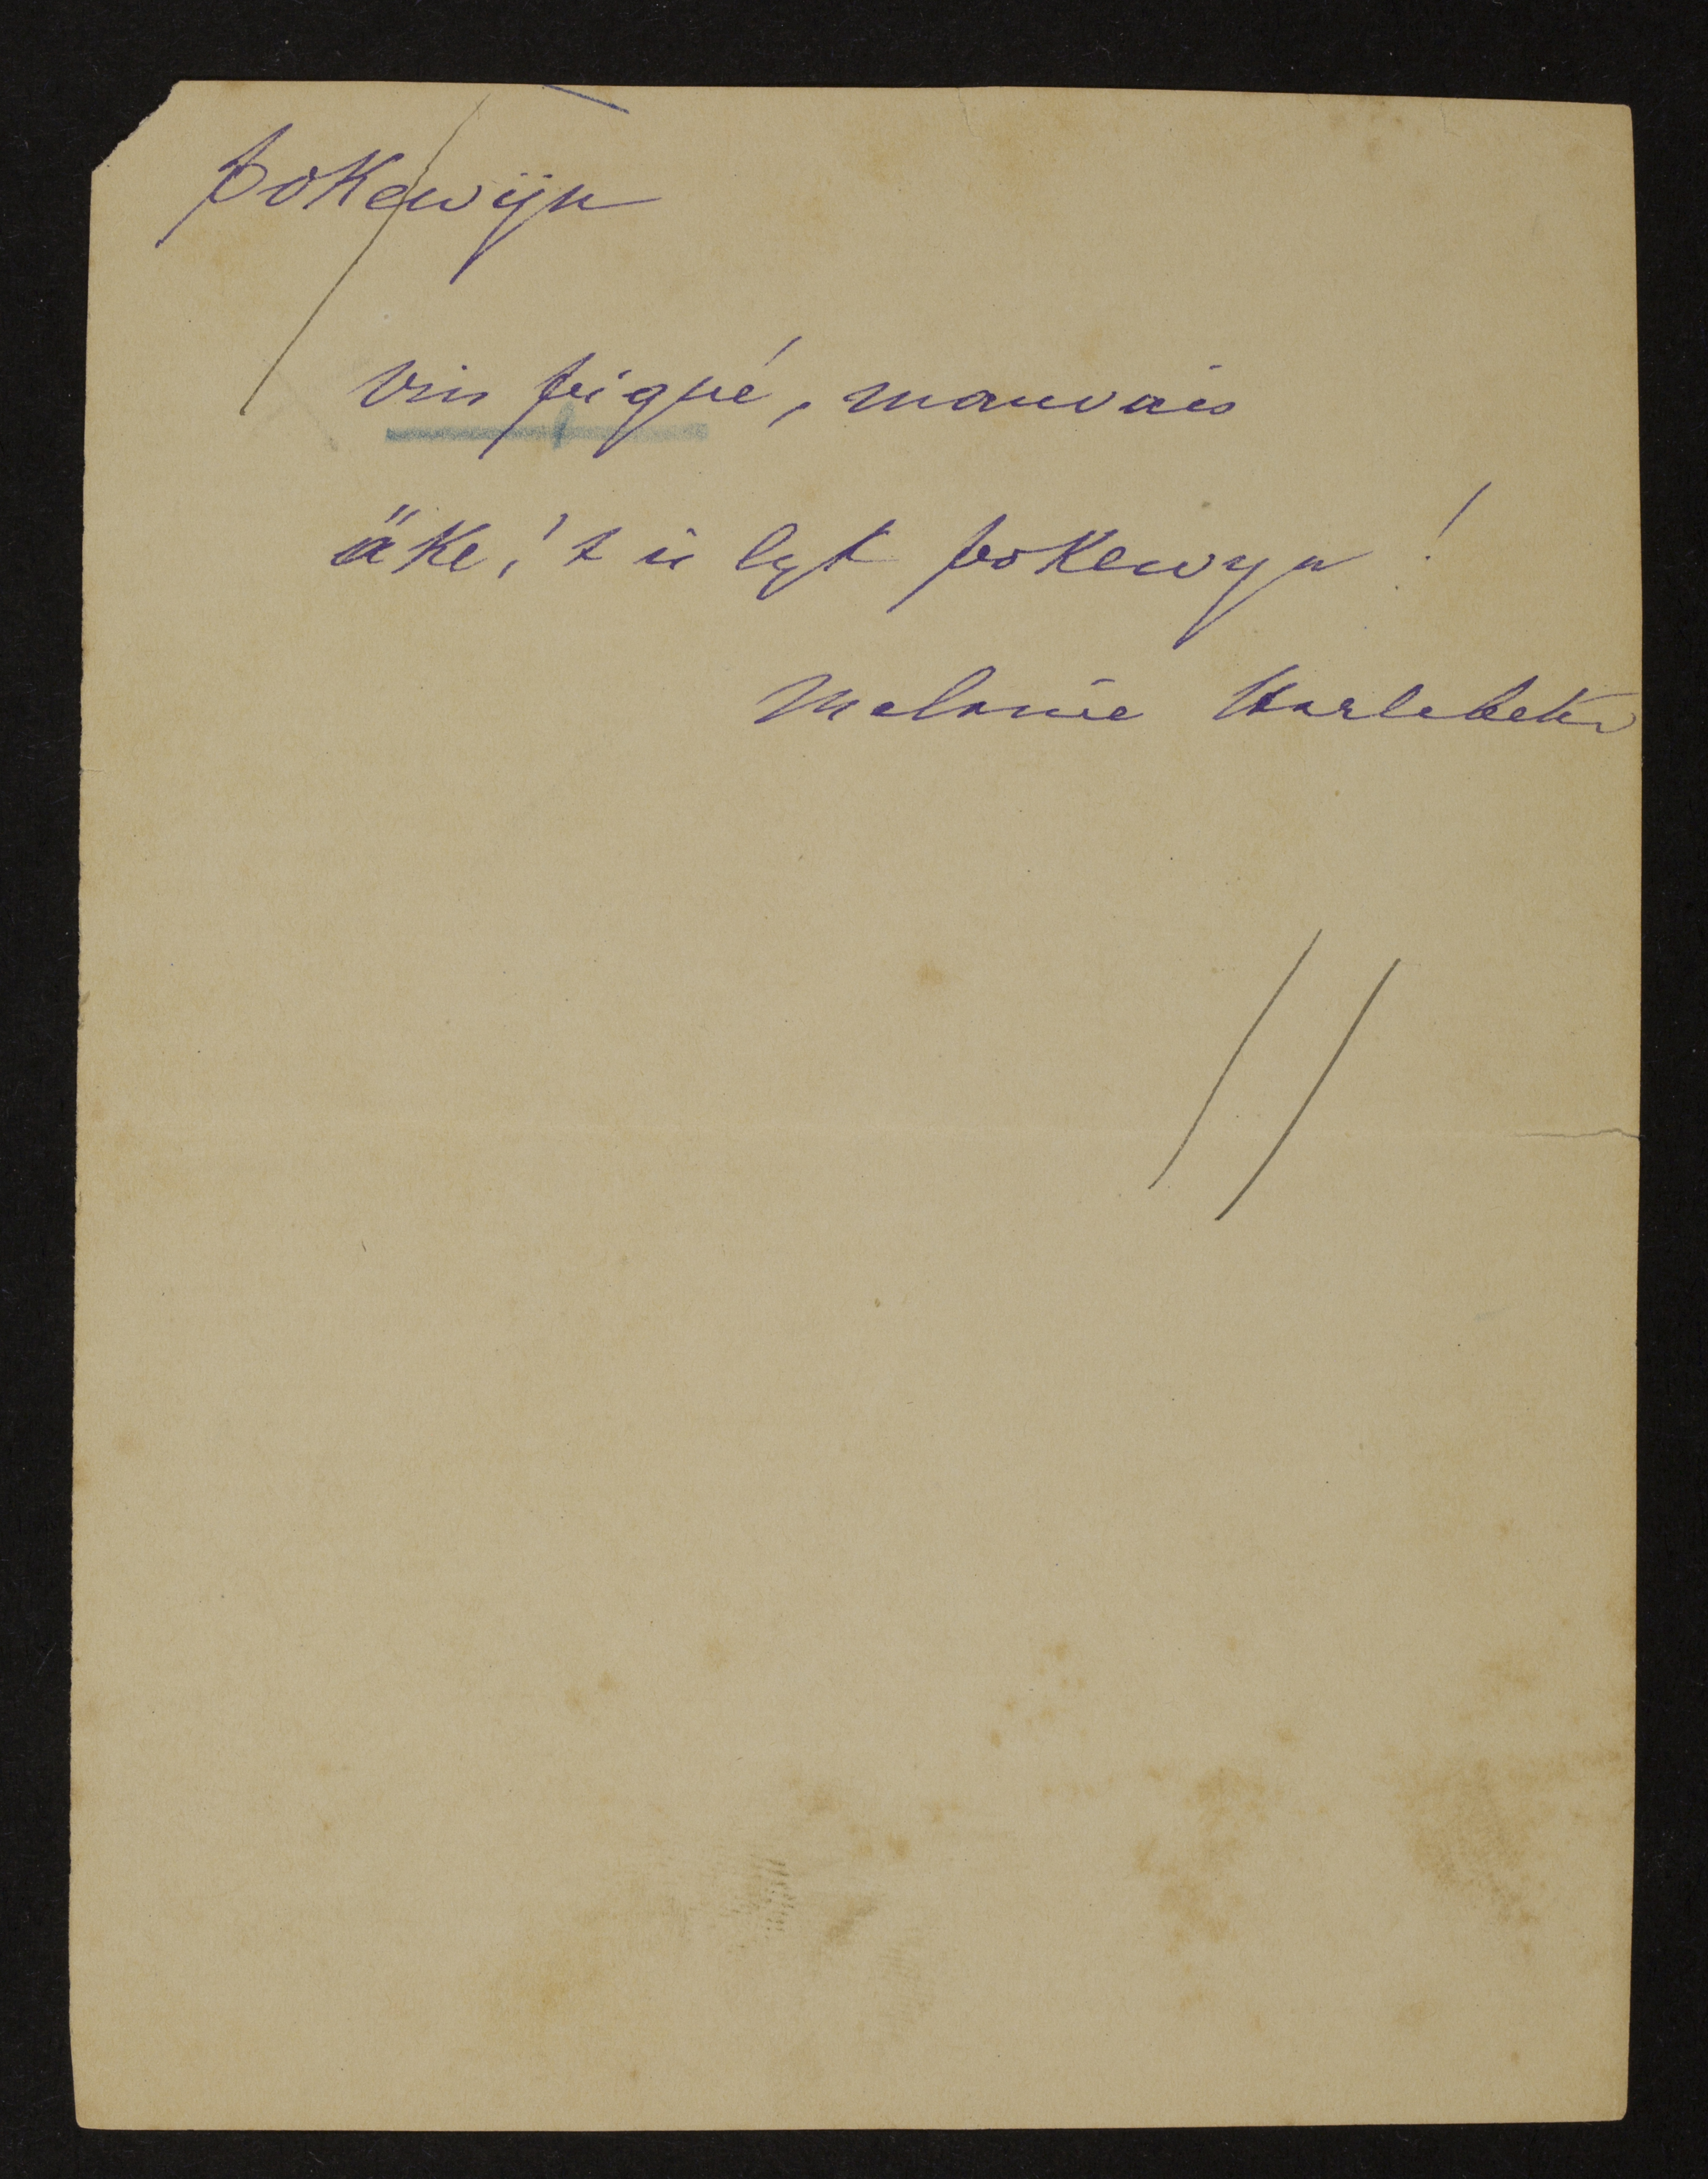 pokewijn
vin piqué, mauvais
äke, 't is lyk pokewyn !
Melanie Harlebeke